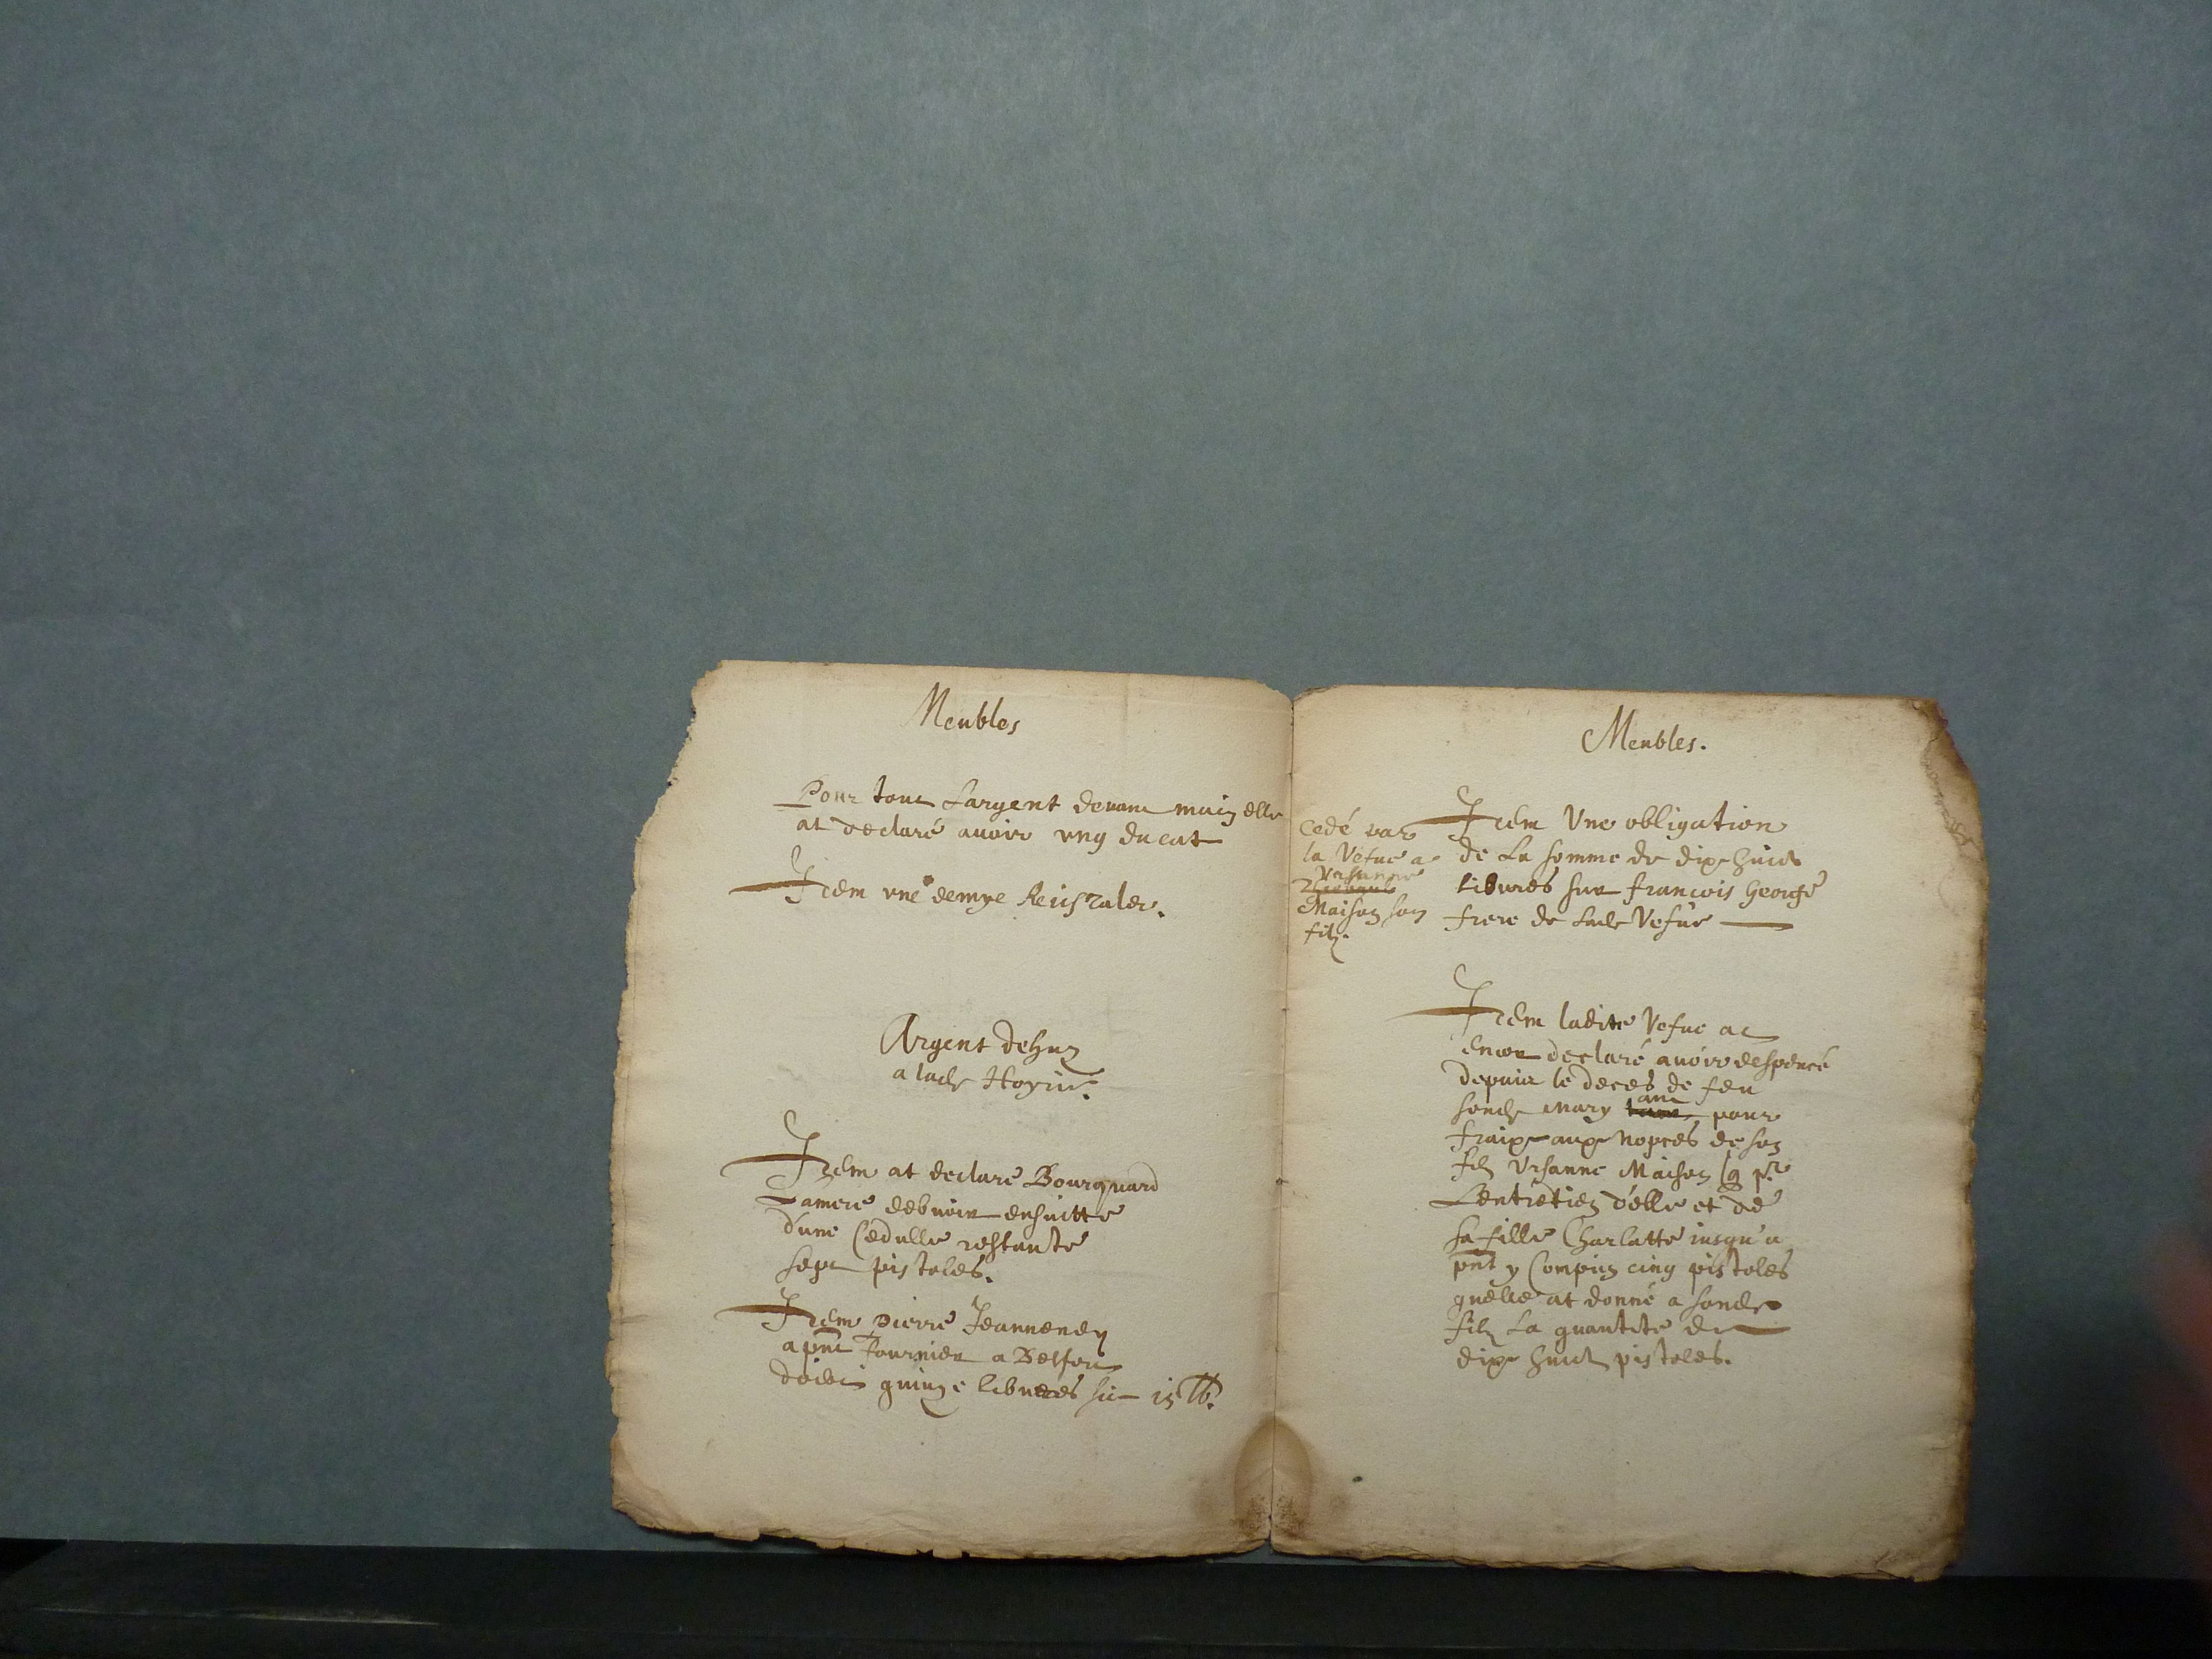 Meubles
Pour tout Largent devant main elle
at declaré auoir vng ducat
Item vne demye Reistaler.
Argent dehuz
a ladte Hoyrie.
Item at declaré Bourquard
Lamere debuoir ensuitte
d'une Cedulle restante
sept pistoles.
Item Pierre Jeanneney
a pnt fournier a Belfort
doibt quinze liburees sic 15 lb.
Meubles.
Item Vne obligation
de La somme de dixe huict
libures sur francois George
frere de ladte Vefue
cedé par
la Vefue a
Vrsanne
Maison son
filz.
Item ladite Vefue at
encor declaré auoir despencé
depuis le deces de feu
sondt mary tant pour
fraixe auxe Nopces de son
filz Vrsanne Maison q pr
Lentretien d'elle et de
sa fille Charlatte iusqu'a
pnt y Comprins cinq pistoles
quelle at donné a sondt
filz La quantité de
dixe huict pistoles.